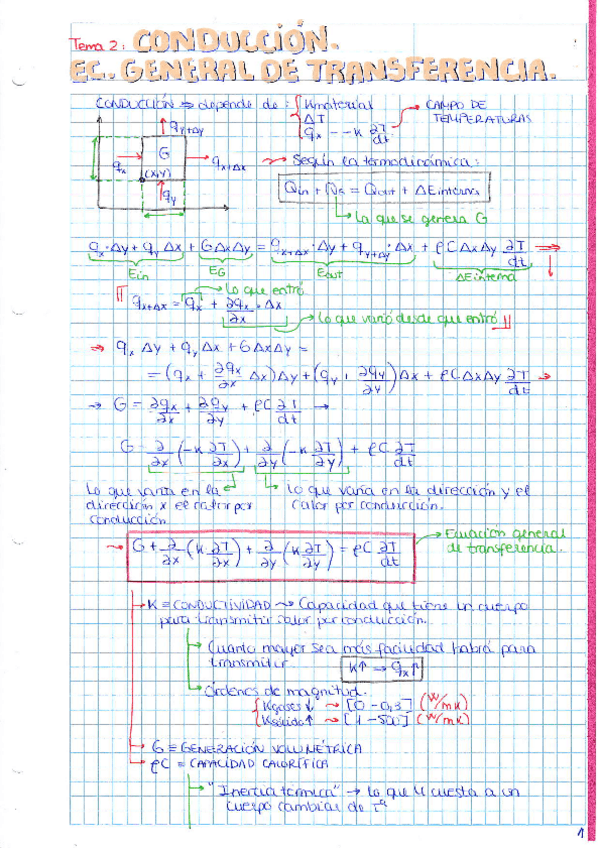 Tema 2: CONDUCCIÓN.
EC. GENERAL DE TRANSFERENCIA.
CONDUCCIÓN ⇒ depende de: { Kmaterial
ΔT
q_x = -K ∂T/dt
→ CAMPO DE TEMPERATURAS
q_y+Δy
G
q_x
q_x+Δx
(x,y)
q_y
Según la termodinámica:
Q_in + Q_G = Q_out + ΔE_interna
↳ La que se genera G
q_x·Δy + q_y Δx + GΔxΔy = q_x+Δx·Δy + q_y+Δy·Δx + ρCΔxΔy ∂T/dt ⇒
E_in E_G E_out ΔE_interna
→ lo que entró
q_x+Δx = q_x + ∂q_x/∂x · Δx
→ lo que varió desde que entró
→ q_x Δy + q_y Δx + GΔxΔy =
= (q_x + ∂q_x/∂x Δx)Δy + (q_y + ∂q_y/∂y)Δx + ρCΔxΔy ∂T/dt →
→ G = ∂q_x/∂x + ∂q_y/∂y + ρC ∂T/dt →
G = ∂/∂x (-K ∂T/∂x) + ∂/∂y (-K ∂T/∂y) + ρC ∂T/dt
Lo que varía en la dirección x el calor por conducción
→ lo que varía en la dirección y el calor por conducción.
→ G + ∂/∂x (K ∂T/∂x) + ∂/∂y (K ∂T/∂y) = ρC ∂T/dt
→ Ecuación general de transferencia.
→ K ≡ CONDUCTIVIDAD ⇝ Capacidad que tiene un cuerpo
para transmitir calor por conducción.
→ Cuanto mayor sea más facilidad habrá para
transmitir K↑ → q_x↑
→ Órdenes de magnitud.
{ Kgases↓ ⇝ [0 - 0,3] (W/mK)
Ksólido↑ ⇝ [1 - 500] (W/mK)
→ G ≡ GENERACIÓN VOLUMÉTRICA
→ ρC = CAPACIDAD CALORÍFICA
→ "Inercia térmica" → lo que le cuesta a un
cuerpo cambiar de Tª
1